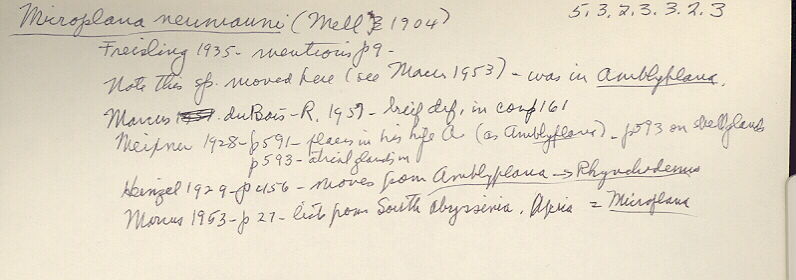 Microplana neumanni (Mell 1904) 5.3.2.3.3.2.3
Freisling 1935 - mentions p9 -
Note this sp. moved here (see Marcus 1953) - was in Amblyplana.
Marcus duBois-R. 1957 - brief def, in comp 161
Meixner 1928 - p591 - places in his type A (as Amblyplana) - p593 on shell glands
p593 - atrial glands in
Heinzel 1929 - p 456 - moves from Amblyplana → Rhynchodemus
Marcus 1953 - p 27 - lists from South Abyssinia, Africa = Microplana